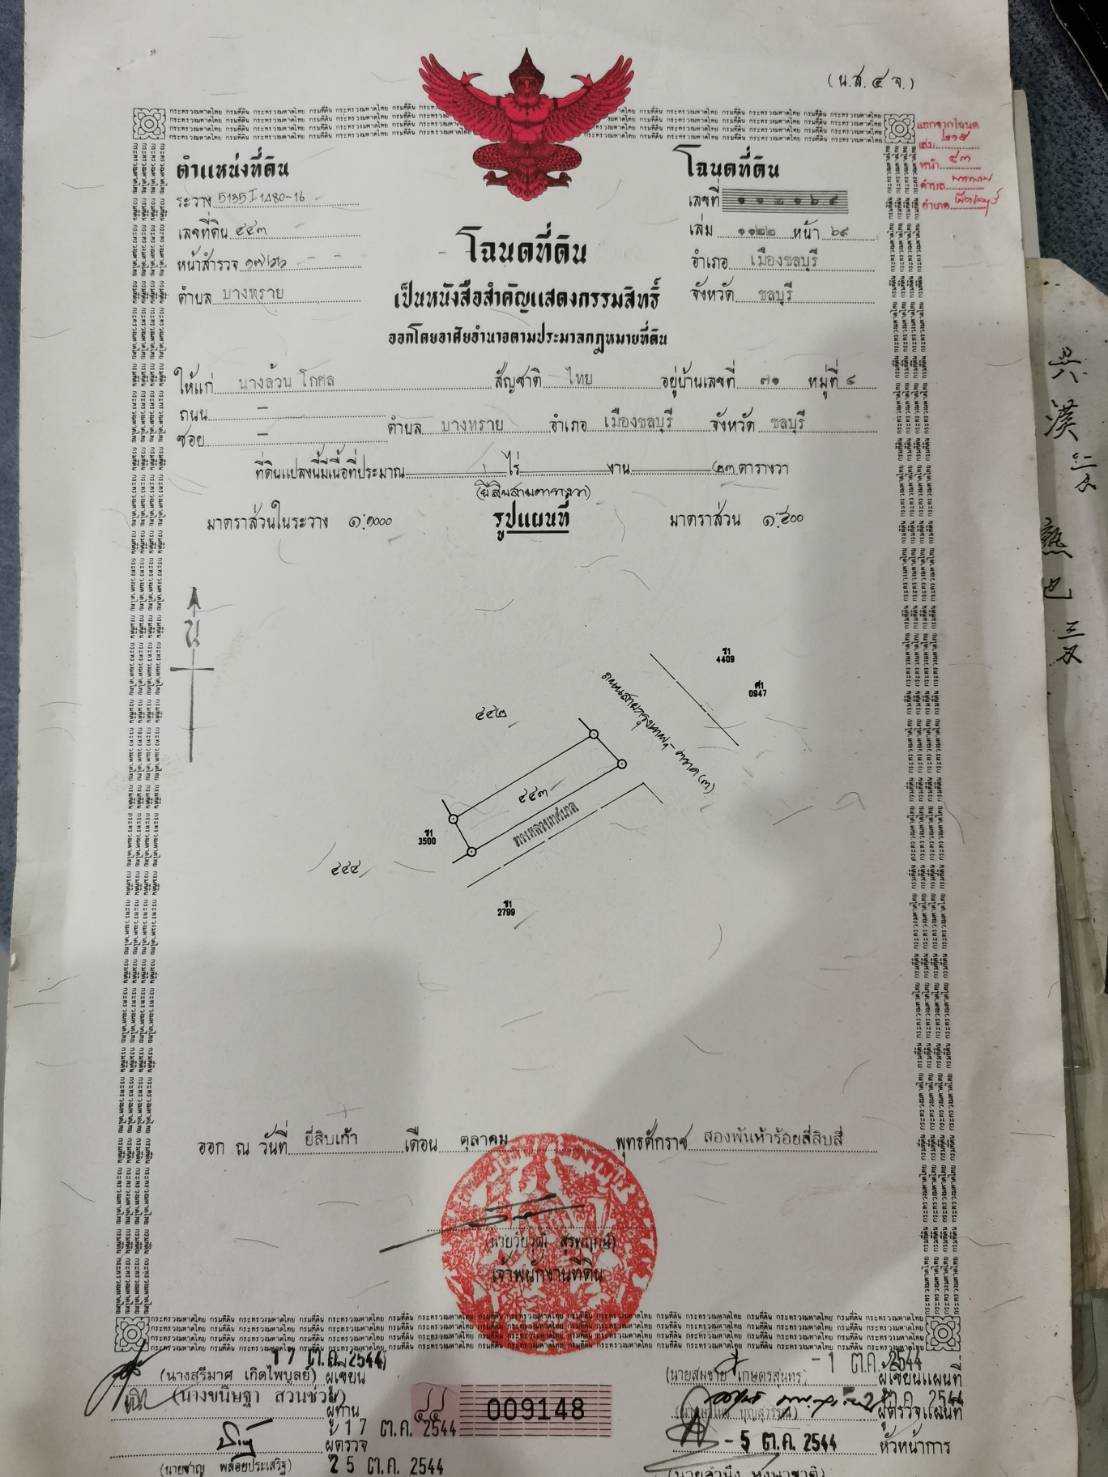 (น.ส.๔ จ.)
แยกจากโฉนด
เล่ม ๒๑๕
หน้า ๔๓
ตำบล
อำเภอ เมืองชลบุรี
ตำแหน่งที่ดิน
ระวาง 5135 I 1480-16
เลขที่ดิน ๔๔๓
หน้าสำรวจ
ตำบล บางทราย
โฉนดที่ดิน
เลขที่ ๑๑๒๑๖๙
เล่ม ๑๑๒๒ หน้า ๖๙
อำเภอ เมืองชลบุรี
จังหวัด ชลบุรี
โฉนดที่ดิน
เป็นหนังสือสำคัญแสดงกรรมสิทธิ์
ออกโดยอาศัยอำนาจตามประมวลกฎหมายที่ดิน
ให้แก่ นางล้วน โกศล สัญชาติ ไทย อยู่บ้านเลขที่ ๓๑ หมู่ที่ ๔
ถนน –
ซอย – ตำบล บางทราย อำเภอ เมืองชลบุรี จังหวัด ชลบุรี
ที่ดินแปลงนี้มีเนื้อที่ประมาณ ไร่ งาน ๒๓ ตารางวา
(ยี่สิบสามตารางวา)
มาตราส่วนในระวาง ๑:๑๐๐๐ รูปแผนที่ มาตราส่วน ๑:๕๐๐
น
ช1
4409
ศ1
0947
๔๔๒
๔๔๓
ทางหลวงเทศบาล
ช1
3500
๔๔๔
ช1
2799
ออก ณ วันที่ ยี่สิบเก้า เดือน ตุลาคม พุทธศักราช สองพันห้าร้อยสี่สิบสี่
(นายวัยวุฒิ สุรพฤกษ์)
เจ้าพนักงานที่ดิน
17 ต.ค. 2544
(นางสรีมาศ เกิดไพบูลย์) ผู้เขียน
(นางขนิษฐา สวนช่วย)
ผู้ทาน
17 ต.ค. 2544
ผู้ตรวจ
(นายชาญ พลอยประเสริฐ) 25 ต.ค. 2544
009148
- 1 ต.ค. 2544
(นายสมชาย เกษตรสุนทร) ผู้เขียนแผนที่
ต.ค. 2544
ผู้ตรวจแผนที่
- 5 ต.ค. 2544 หัวหน้าการ
กระทรวงมหาดไทย กรมที่ดิน